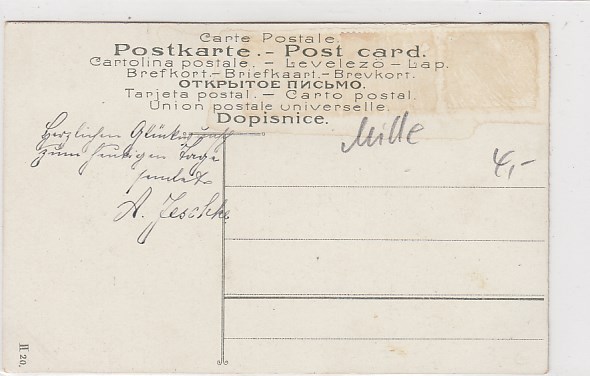 Carte Postale.
Postkarte.- Post card.
Cartolina postale. – Levelező – Lap.
Brefkort.–Briefkaart.–Brevkort.
ОТКРЫТОЕ ПИСЬМО.
Tarjeta postal. – Carto postal.
Union postale universelle.
Dopisnice.
Herzlichen Glückwunsch
zum heutigen Tage
sendet
A. Jeschke
Mille
4,-
II 20,